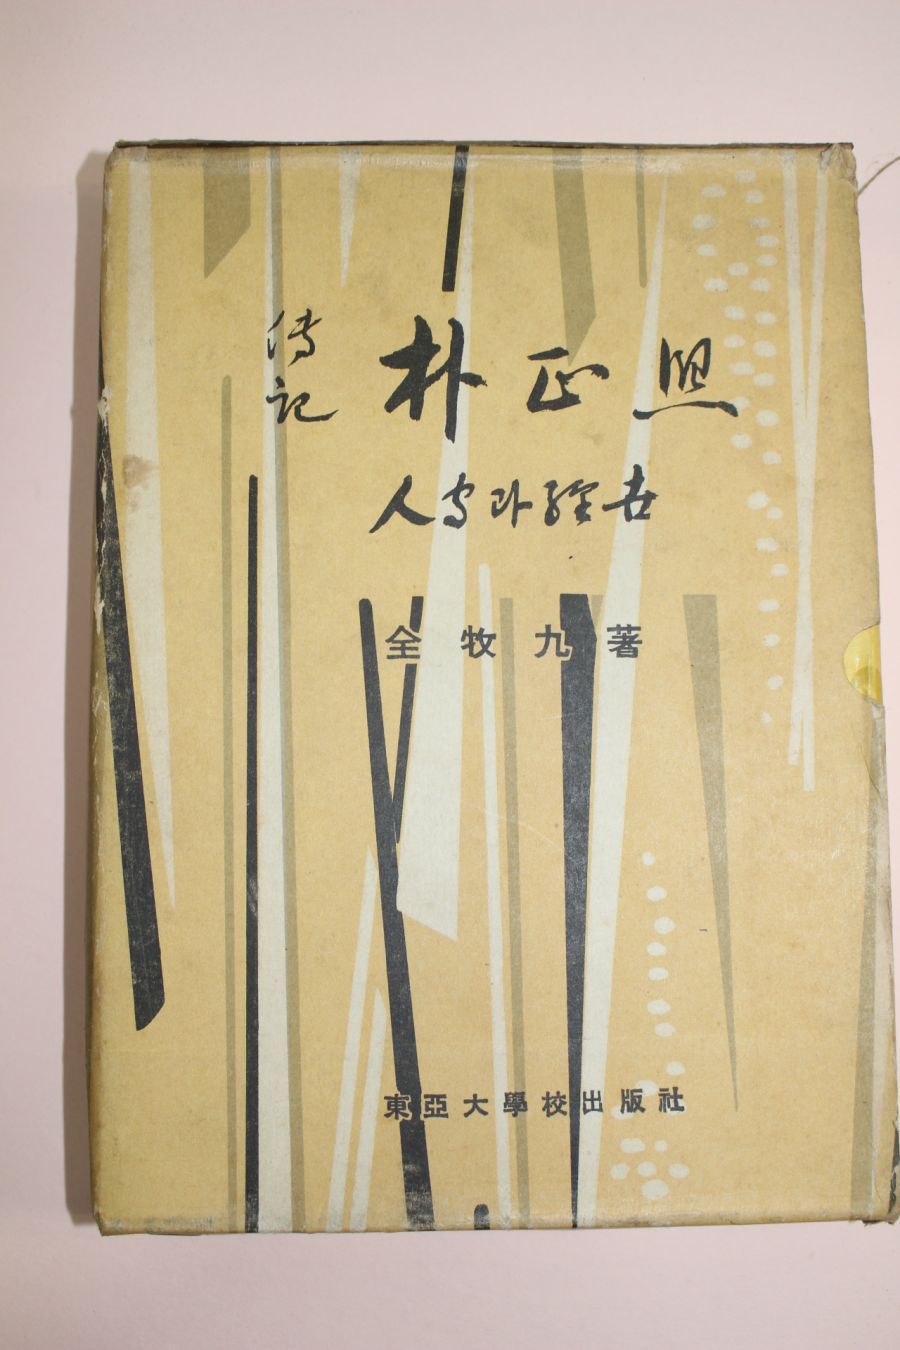 傳記
朴正熙
人 과
全牧九 著
東亞大學校出版社